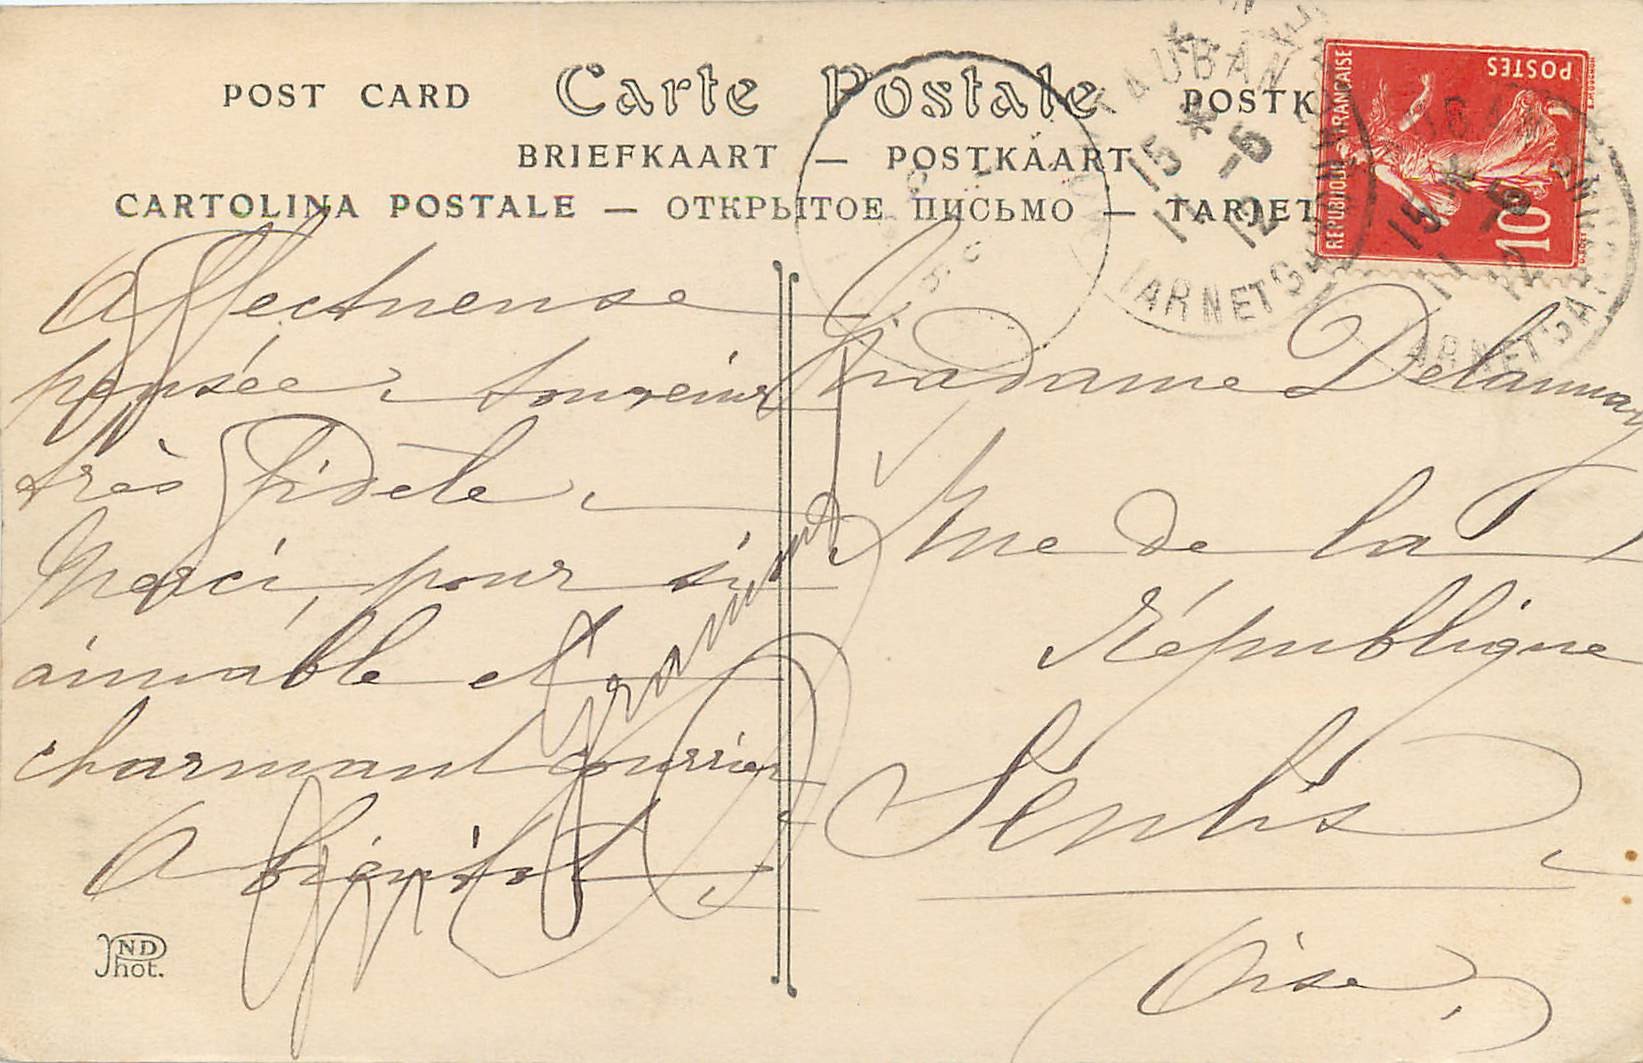 POST CARD Carte Postale POSTK
BRIEFKAART — POSTKAART
CARTOLINA POSTALE — ОТКРЫТОЕ ПИСЬМО — TARJET
REPUBLIQUE FRANÇAISE
POSTES
10
MONTAUBAN
15 * 5
12
TARN ET GARONNE
15 * 5
12
TARN ET GARONNE
Affectueuse
pensée, souvenir
très fidèle.
Merci pour si
aimable et
charmant courrier
A bientôt
Madame Delaunay
Rue de la
République
Senlis
Oise
ND
Phot.